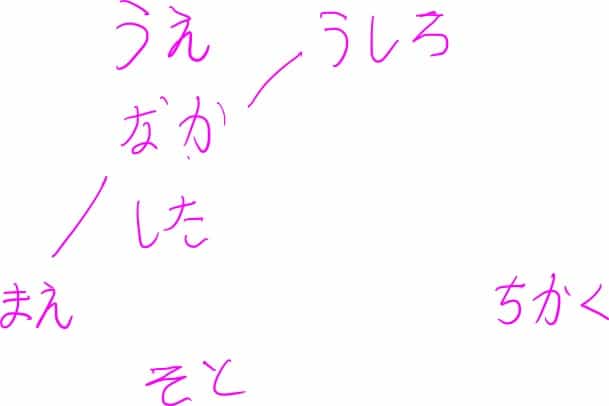 うえ
うしろ
なか
した
まえ
ちかく
そと